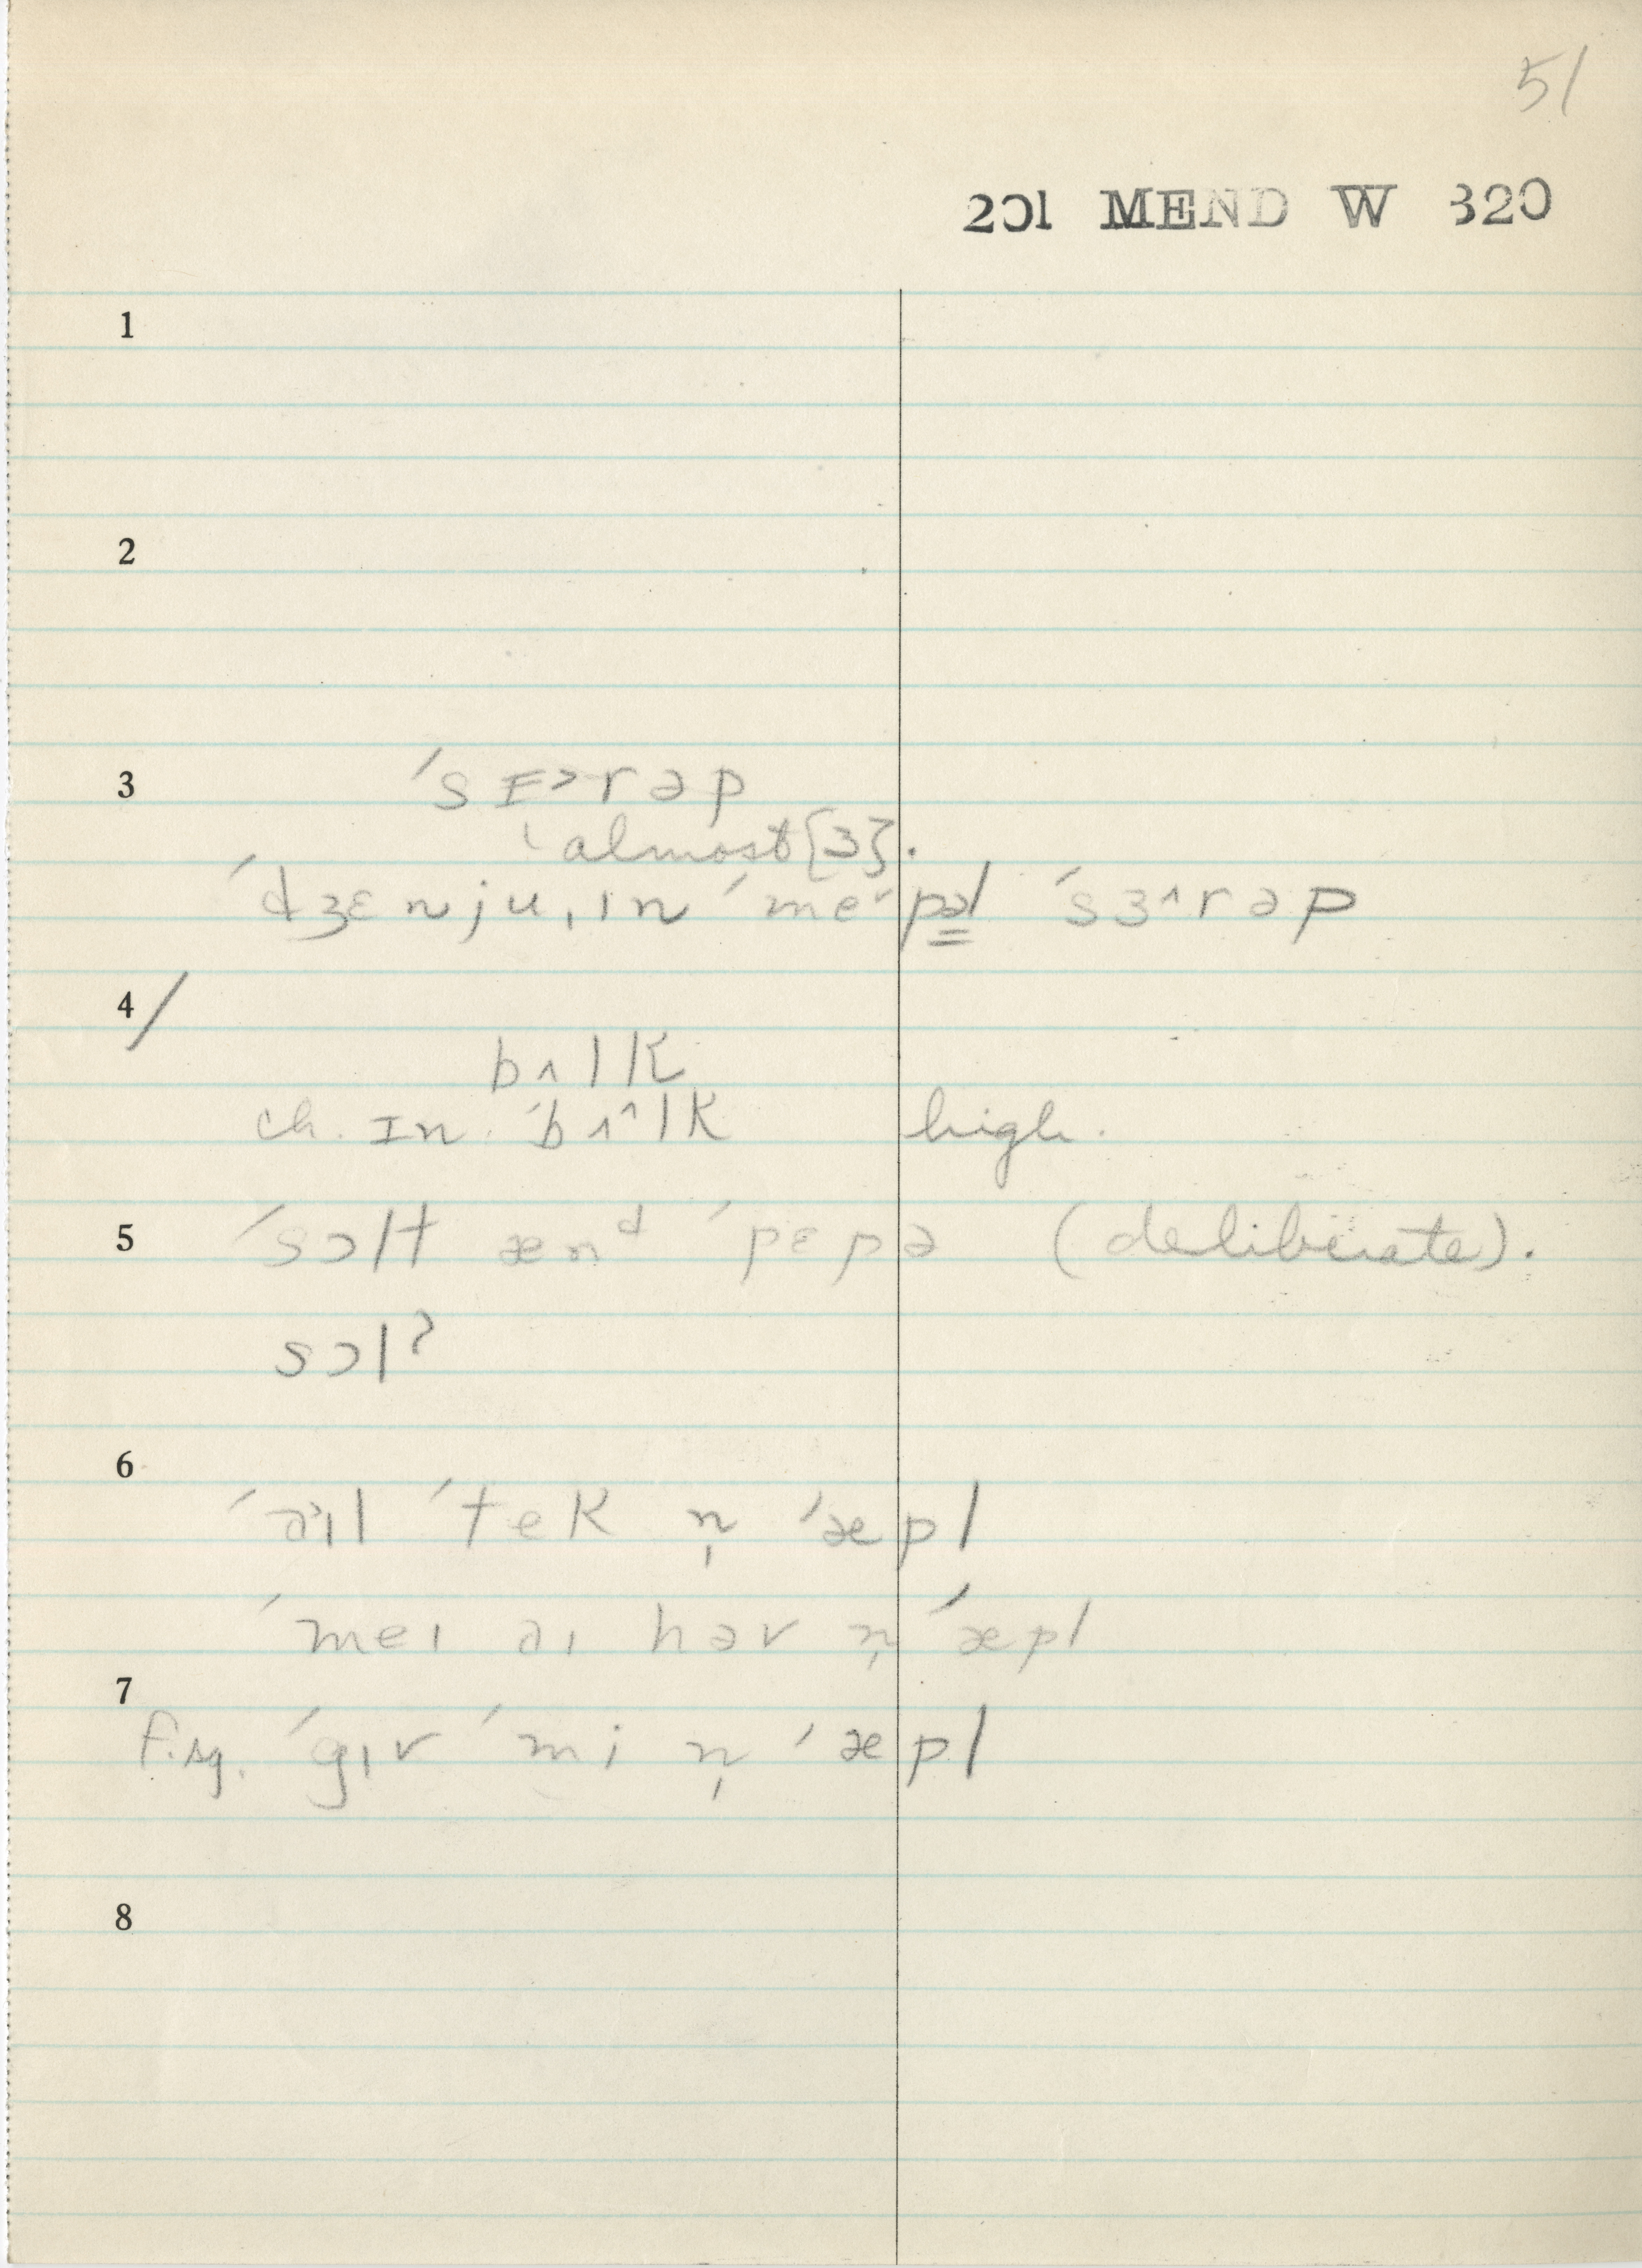 51
201 MEND W 320
1
2
3 ˈsɪ˃rəp
almost [ɜ].
ˈdʒɛnju,ɪn ˈme˅pəl ˈsɜ˄rəp
4/
bʌlk
ch. ɪn ˈbʌ˄lk high.
5 ˈsɔlt ænᵈ ˈpɛpə (deliberate).
sɔlˀ
6
ˈa˃ɪl ˈtek n̩ ˈæpl
ˈmeɪ aɪ həv n̩ ˈæpl
7
f.sq. ˈgɪv ˈmi n̩ ˈæpl
8